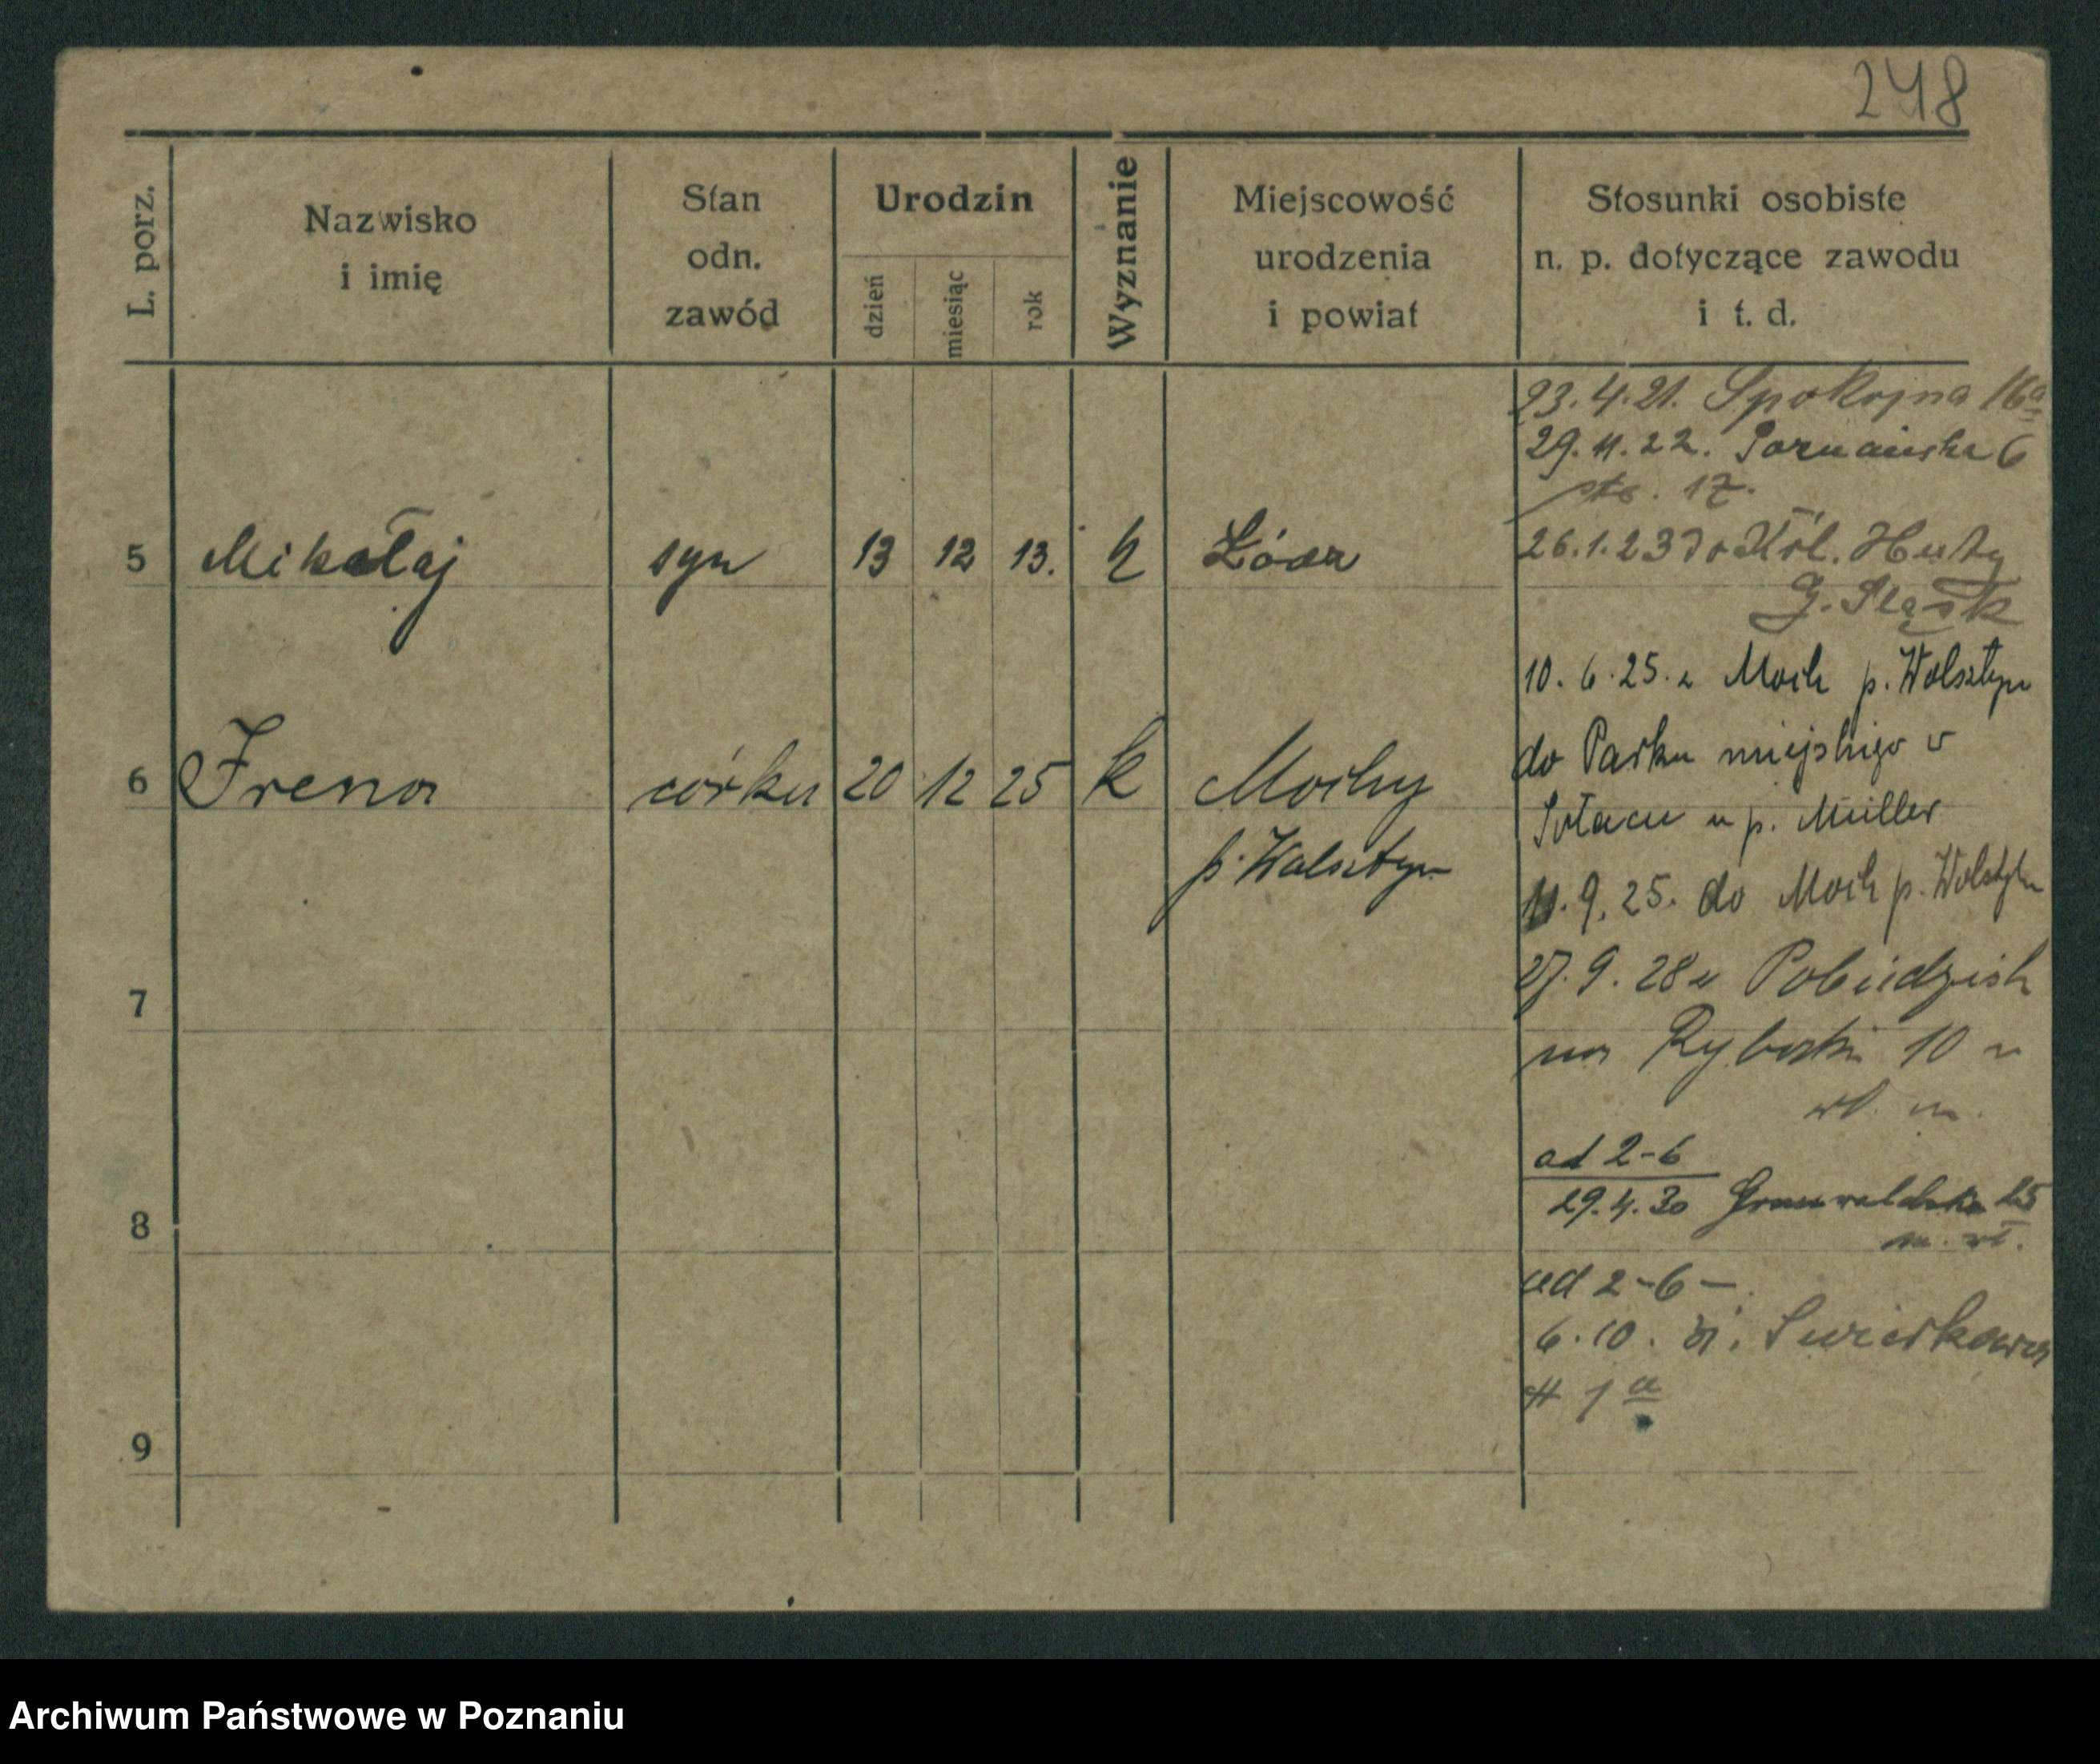 248
L. porz.
Nazwisko
i imię
Stan
odn.
zawód
Urodzin
dzień
miesiąc
rok
Wyznanie
Miejscowość
urodzenia
i powiat
Stosunki osobiste
n. p. dotyczące zawodu
i t. d.
23.4.21. Spokojna 16a
29.11.22. Poznańska 6
ptr. 17.
5 Mikołaj syn 13 12 13. k Łódz
26.1.23 do Król. Huty
G. Śląsk
10.6.25. z Moch p. Wolsztyn
do Parku miejskiego w
6 Irena córka 20 12 25 k Mochy
p. Wolsztyn
Sołaczu u p. Müller
11.9.25. do Moch p. Wolsztyn
27.9.28 z Pobiedzisk
7
na Rybaki 10
wł. m.
od 2-6
8
29.4.30 Grunwaldzka 25
m. wł.
od 2-6 –
6.10. Świerkowa
1a
9
Archiwum Państwowe w Poznaniu